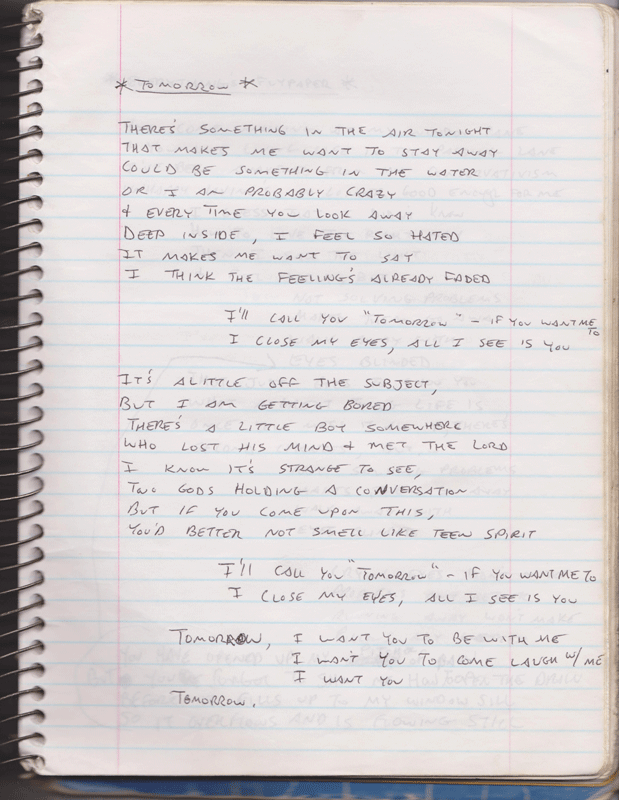 * TOMORROW *
THERE'S SOMETHING IN THE AIR TONIGHT
THAT MAKES ME WANT TO STAY AWAY
COULD BE SOMETHING IN THE WATER
OR I AM PROBABLY CRAZY
& EVERY TIME YOU LOOK AWAY
DEEP INSIDE, I FEEL SO HATED
IT MAKES ME WANT TO SAY
I THINK THE FEELING'S ALREADY FADED
I'll CALL YOU "TOMORROW" - IF YOU WANT ME TO
I CLOSE MY EYES, ALL I SEE IS YOU
IT'S A LITTLE OFF THE SUBJECT,
BUT I AM GETTING BORED
THERE'S A LITTLE BOY SOMEWHERE
WHO LOST HIS MIND & MET THE LORD
I KNOW IT'S STRANGE TO SEE,
TWO GODS HOLDING A CONVERSATION
BUT IF YOU COME UPON THIS,
YOU'D BETTER NOT SMELL LIKE TEEN SPIRIT
I'll CALL YOU "TOMORROW" - IF YOU WANT ME TO
I CLOSE MY EYES, ALL I SEE IS YOU
TOMORROW, I WANT YOU TO BE WITH ME
I WANT YOU TO COME LAUGH W/ ME
I WANT YOU
TOMORROW.